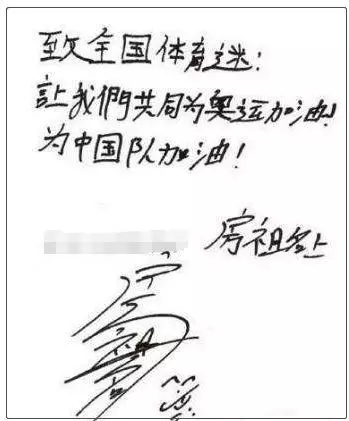 致全国体育迷：
让我們共同为奥运加油!
为中国队加油！
房祖名上